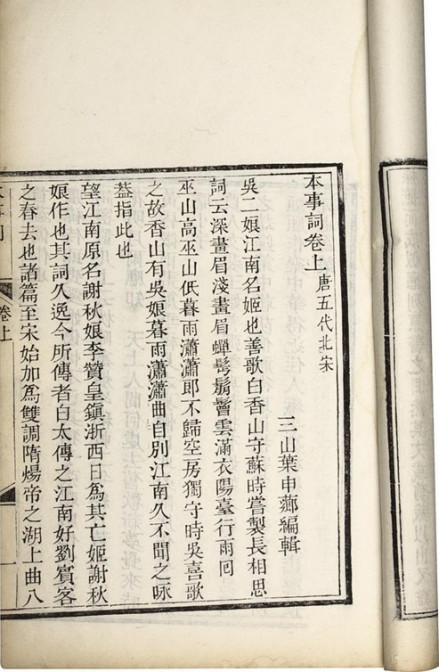 本事詞卷上 唐五代北宋
三山葉申薌編輯
吳二娘江南名姬也善歌白香山守蘇時嘗製長相思
詞云深畫眉淺畫眉蟬鬢鬅鬙雲滿衣陽臺行雨回
巫山高巫山低暮雨瀟瀟郎不歸空房獨守時吳喜歌
之故香山有吳娘暮雨瀟瀟曲自別江南久不聞之咏
葢指此也
望江南原名謝秋娘李贊皇鎮浙西日為其亡姬謝秋
娘作也其詞久逸今所傳者白太傅之江南好劉賓客
之春去也諸篇至宋始加為雙調隋煬帝之湖上曲八
卷上